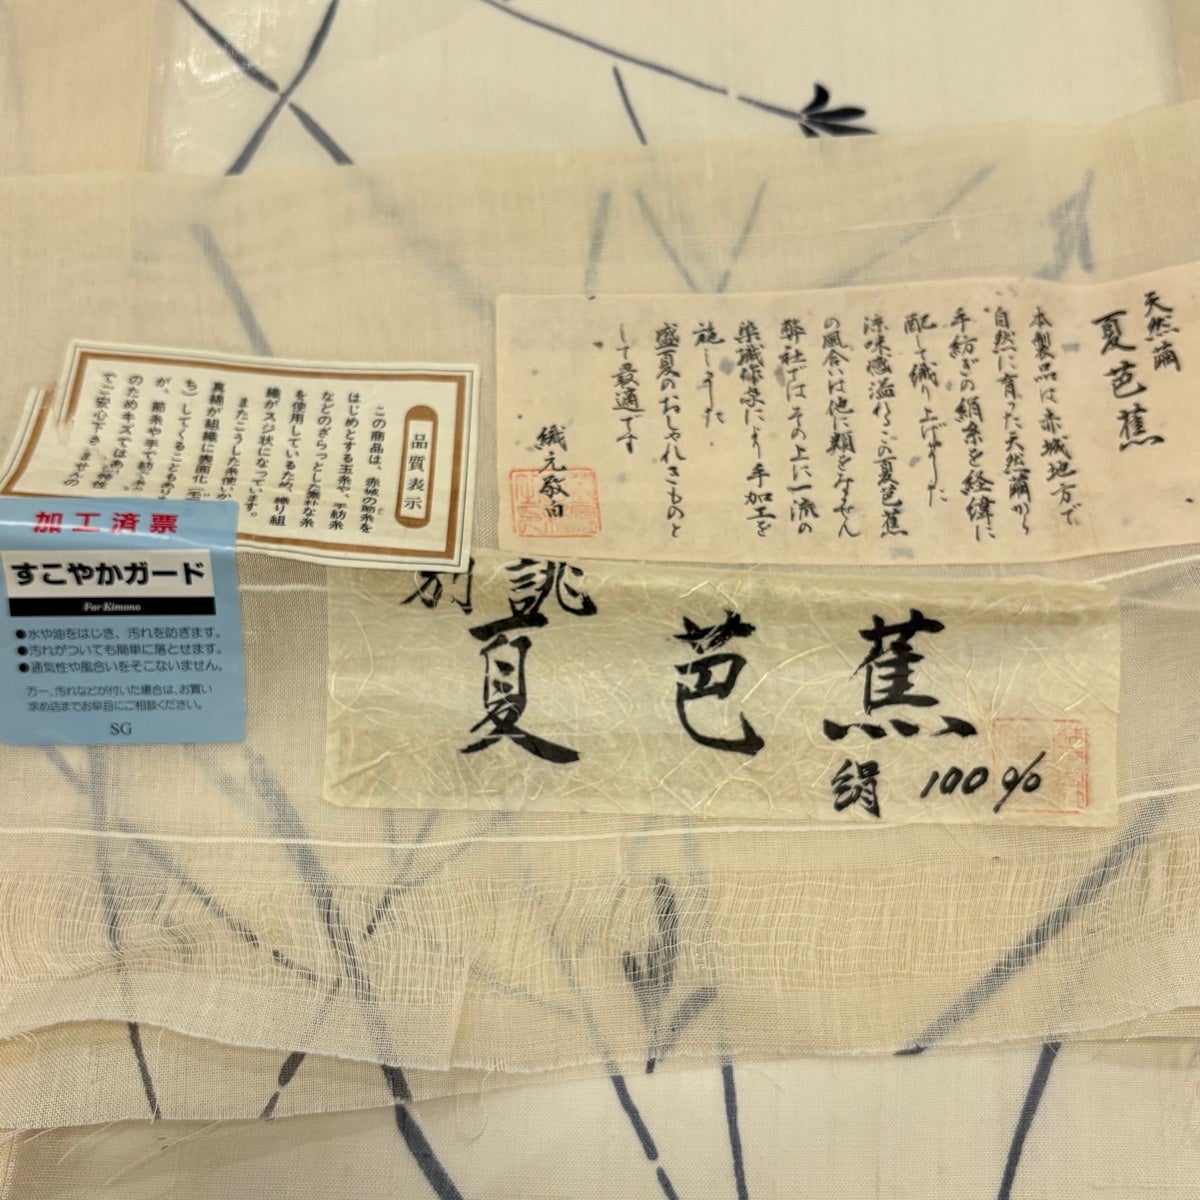 天然繭
夏芭蕉
本製品は赤城地方で
自然に育った天然繭から
手紡ぎの絹糸を経緯に
配して織り上げました
涼味感溢れるこの夏芭蕉
の風合いは他に類をみません
弊社ではその上に一流の
染織作家により手加工を
施しました.
盛夏のおしゃれきものと
して最適です
織元敬白
品質表示
この商品は、赤城の節糸を
はじめとする玉糸や、手紡糸
などのざらっとした素朴な糸
を使用しているため、織り組
織がスジ状になっています。
またこうした糸使いか
真綿が組織に表面化(毛
ち)してくることもあり
が、節糸や手で紡ぐ糸
のためキズではあ
でご安心下さいませ
加工済票
すこやかガード
For Kimono
●水や油をはじき、汚れを防ぎます。
●汚れがついても簡単に落とせます。
●通気性や風合いをそこないません。
万一、汚れなどが付いた場合は、お買い
求め店までお早目にご相談ください。
SG
別誂
夏芭蕉
絹100%